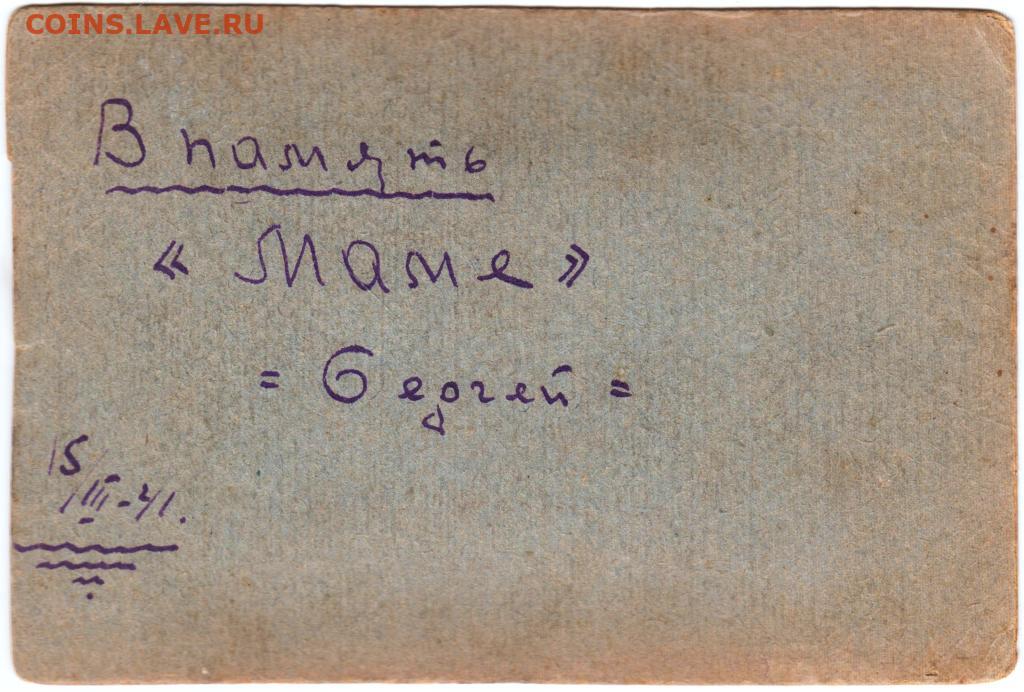 COINS.LAVE.RU
В память
« Маме »
= Сергей =
15/III-41.